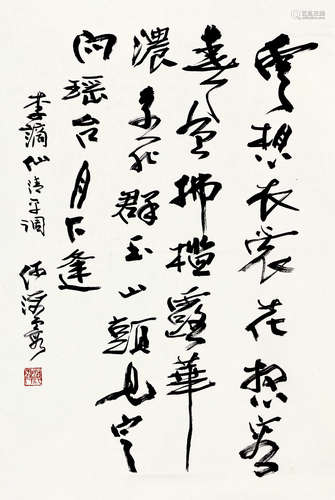 雲想衣裳花想容
春風拂槛露華
濃若非群玉山頭見
向瑶台月下逢
李謫仙清平调